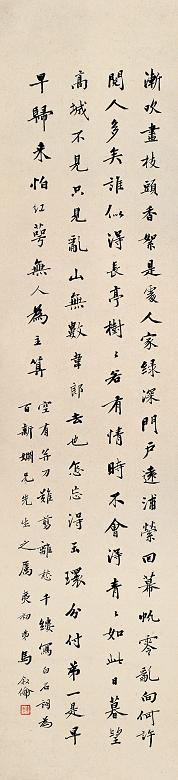 漸吹盡枝頭香絮是處人家綠深門戶遠浦縈回暮帆零亂向何許
閱人多矣誰似得長亭樹〻若有情時不會得青〻如此日暮望
高城不見只見亂山無數韋郎去也怎忘得玉環分付第一是早
早歸來怕紅萼無人為主算
空有并刀難剪離愁千縷寫白石詞為
百新姻兄先生之屬 夷初弟馬叙倫